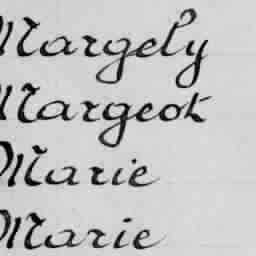 Margely
Margeot
Marie
Marie